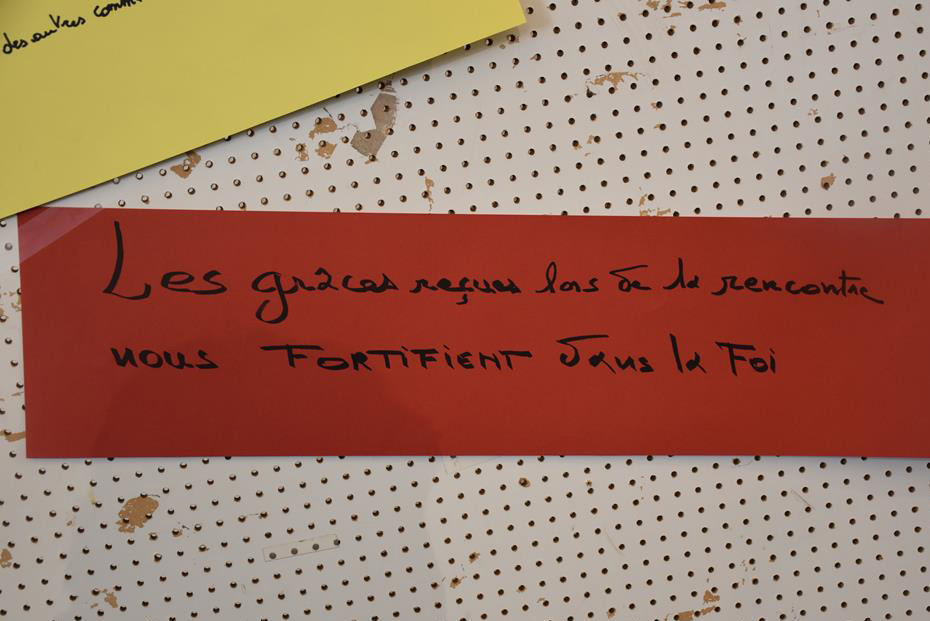 des autres comm
Les grâces reçues lors de la rencontre
nous FORTiFiENT dans la Foi